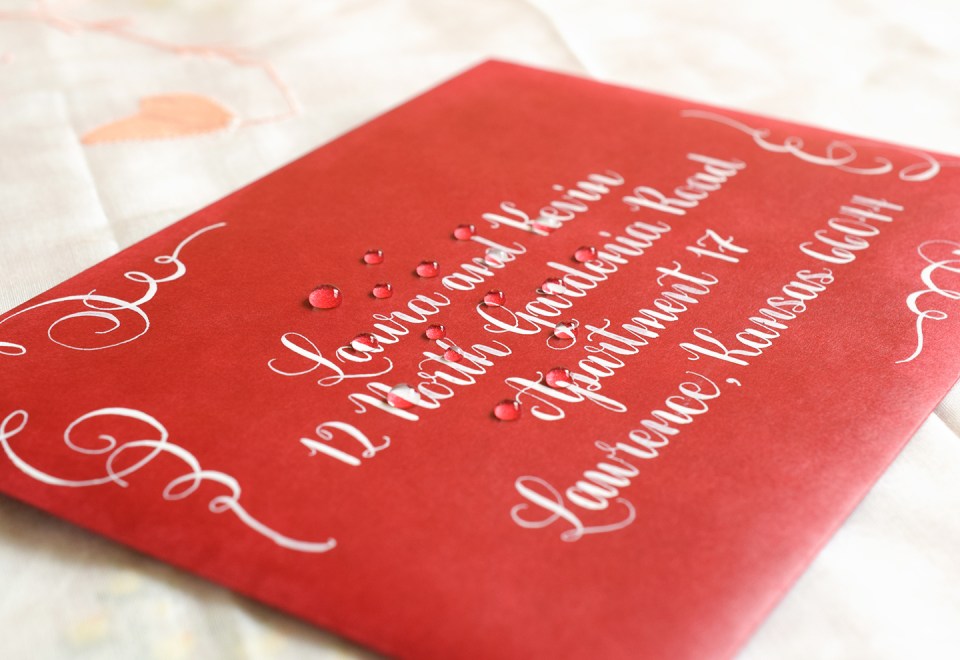 Laura and Kevin
12 North Gardenia Road
Apartment 17
Lawrence, Kansas 66044